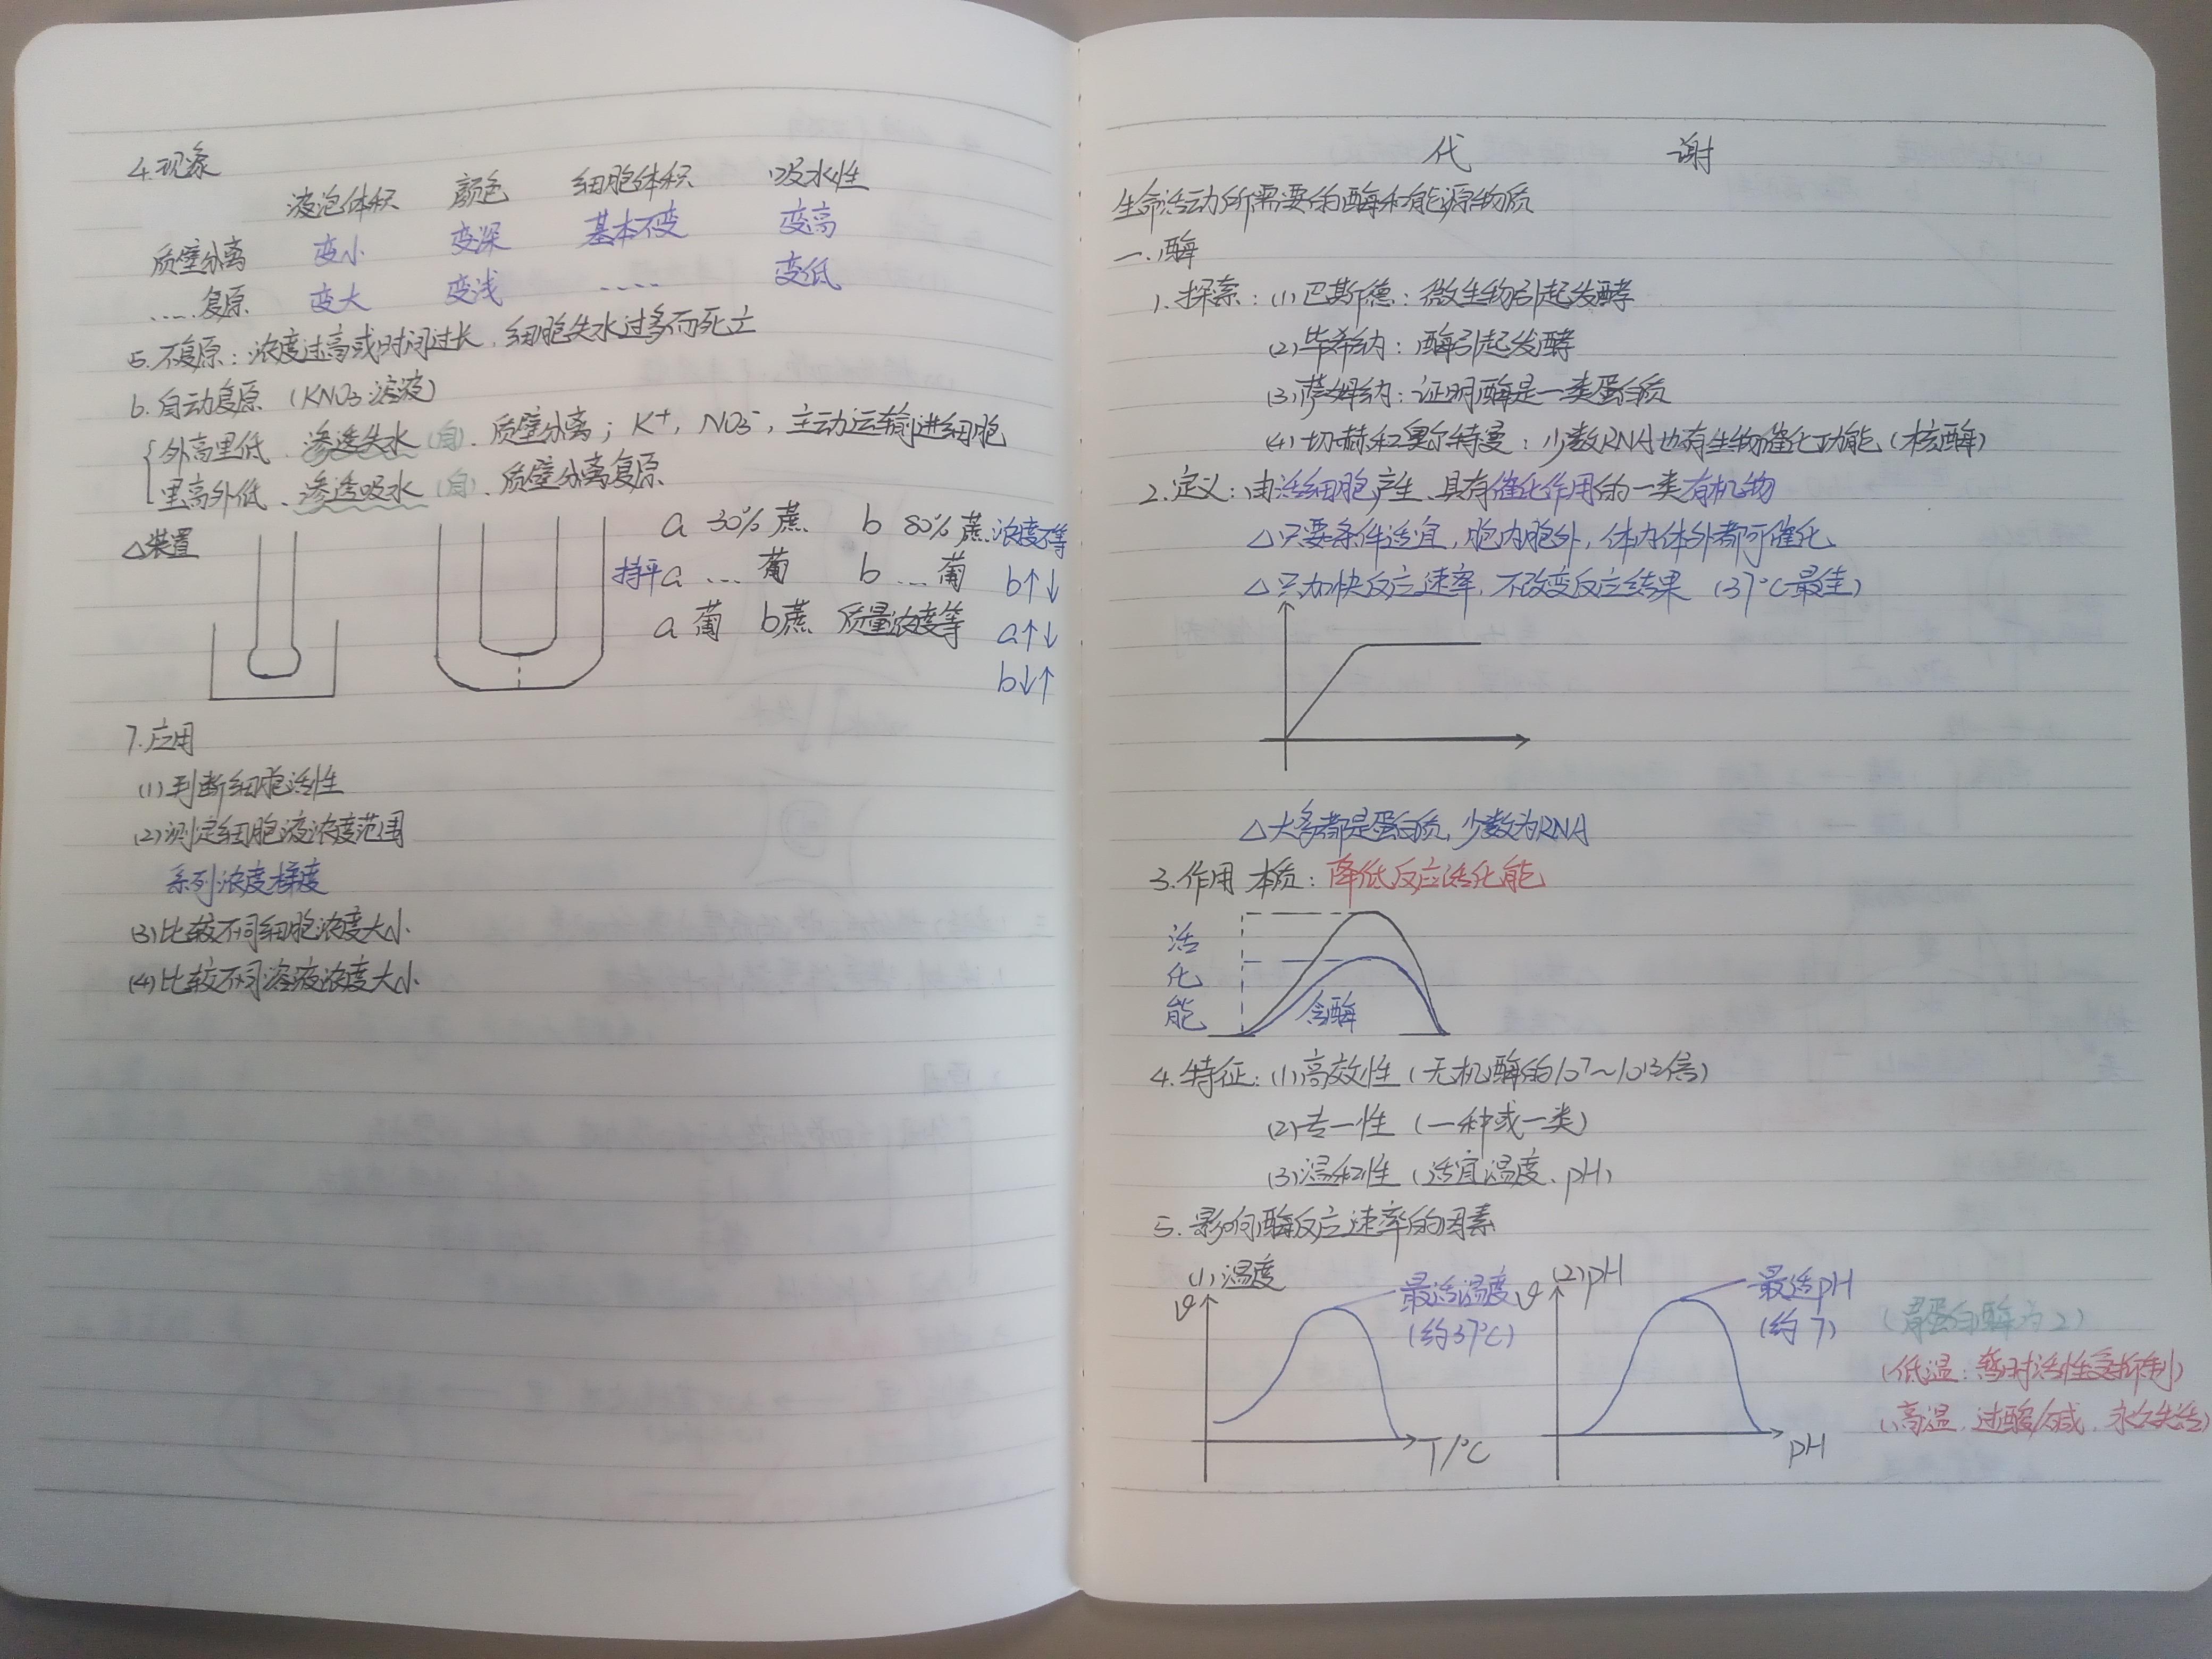 4.现象
液泡体积 颜色 细胞体积 吸水性
质壁分离 变小 变深 基本不变 变高
……复原 变大 变浅 …… 变低
5.不复原：浓度过高或时间过长，细胞失水过多而死亡
6.自动复原（KNO3溶液）
外高里低、渗透失水（自）、质壁分离；K+，NO3-，主动运输进细胞
里高外低、渗透吸水（自）、质壁分离复原
△装置
a 30%蔗 b 80%蔗 浓度不等
持平 a … 葡 b … 葡 b↑↓
a 葡 b蔗 质量浓度等 a↑↓
b↓↑
7.应用
(1)判断细胞活性
(2)测定细胞液浓度范围
系列浓度梯度
(3)比较不同细胞浓度大小
(4)比较不同溶液浓度大小
代 谢
生命活动所需要的酶和能源物质
一.酶
1.探索：(1)巴斯德：微生物引起发酵
(2)毕希纳：酶引起发酵
(3)萨姆纳：证明酶是一类蛋白质
(4)切赫和奥尔特曼：少数RNA也有生物催化功能（核酶）
2.定义：由活细胞产生、具有催化作用的一类有机物
△只要条件适宜，胞内胞外，体内体外都可催化
△只加快反应速率，不改变反应结果（37℃最佳）
△大多都是蛋白质，少数为RNA
3.作用本质：降低反应活化能
活
化
能
含酶
4.特征：(1)高效性（无机酶的10⁷~10¹³倍）
(2)专一性（一种或一类）
(3)温和性（适宜温度、pH）
5.影响酶反应速率的因素
(1)温度
v
最适温度
（约37℃）
T/℃
(2)pH
v
最适pH
（约7）
pH
（胃蛋白酶为2）
（低温：暂时活性受抑制）
（高温，过酸/碱，永久失活）